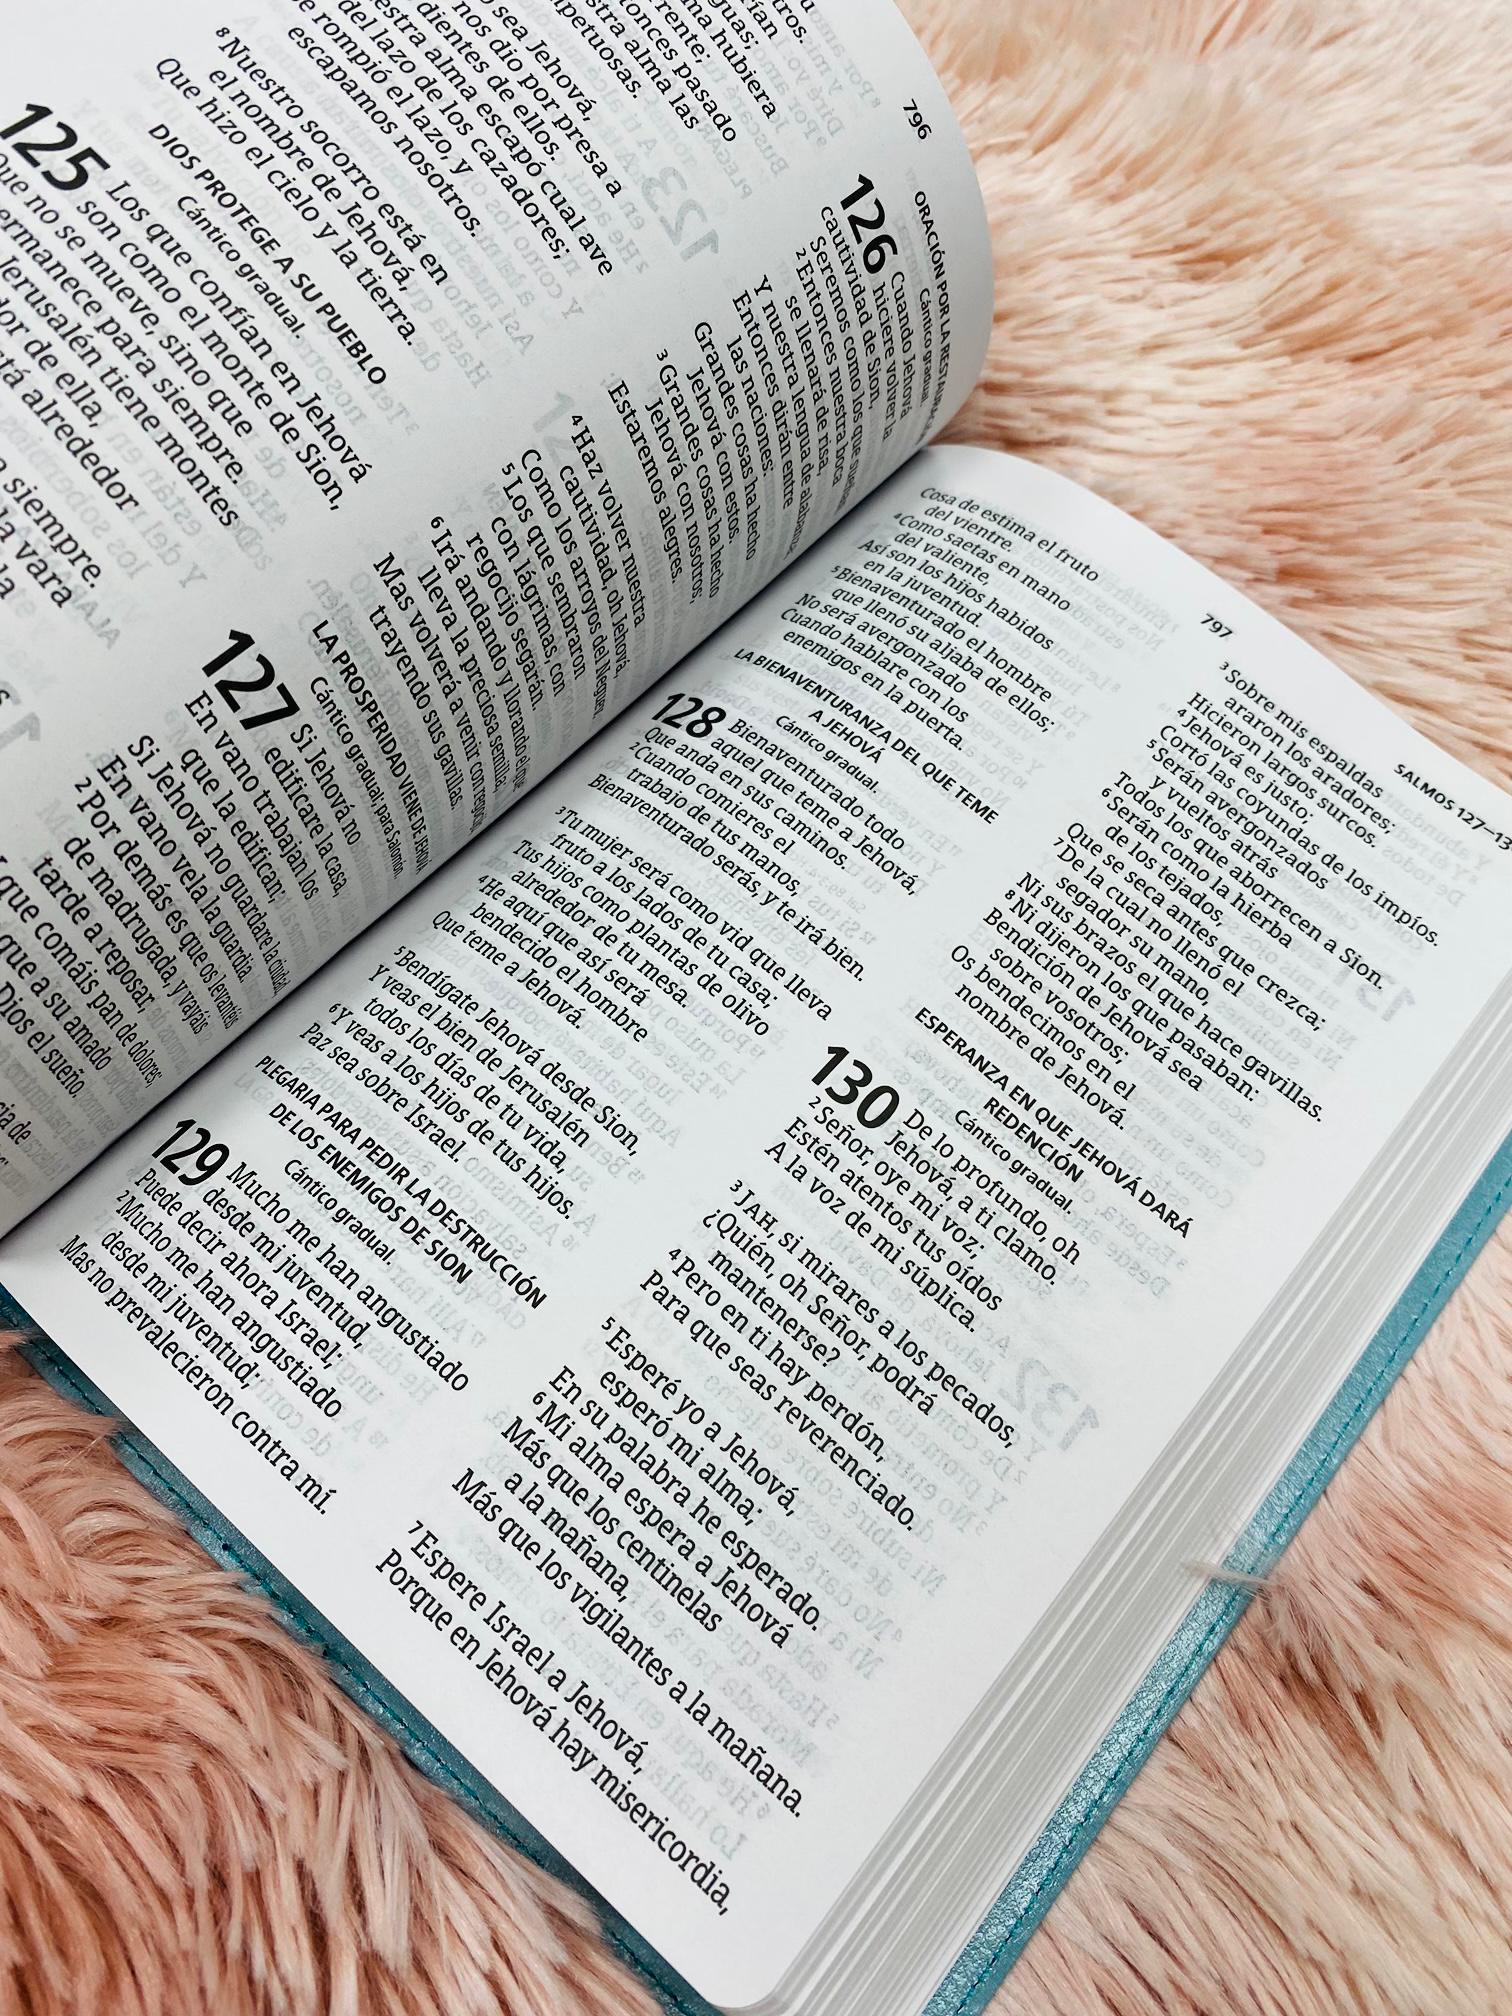 796
tros.
guas;
ma hubiera
rrente;
tonces pasado
stra alma las
mpetuosas.
sea Jehová,
nos dio por presa a
dientes de ellos.
estra alma escapó cual ave
del lazo de los cazadores;
e rompió el lazo, y
escapamos nosotros.
8 Nuestro socorro está en
el nombre de Jehová,
Que hizo el cielo y la tierra.
DIOS PROTEGE A SU PUEBLO
Cántico gradual.
125 Los que confían en Jehová
son como el monte de Sion,
que no se mueve, sino que
ermanece para siempre.
Jerusalén tiene montes
dor de ella,
stá alrededor
siempre.
la vara
ORACIÓN POR LA RESTAURACIÓN
Cántico gradual.
126 Cuando Jehová
hiciere volver la
cautividad de Sion,
Seremos como los que sueñan.
2 Entonces nuestra boca
se llenará de risa,
Y nuestra lengua de alabanza;
Entonces dirán entre
las naciones:
Grandes cosas ha hecho
Jehová con estos.
3 Grandes cosas ha hecho
Jehová con nosotros;
Estaremos alegres.
4 Haz volver nuestra
cautividad, oh Jehová,
Como los arroyos del Neguev.
5 Los que sembraron
con lágrimas, con
regocijo segarán.
6 Irá andando y llorando el que
lleva la preciosa semilla;
Mas volverá a venir con regocijo,
trayendo sus gavillas.
LA PROSPERIDAD VIENE DE JEHOVÁ
Cántico gradual; para Salomón.
127 Si Jehová no
edificare la casa,
En vano trabajan los
que la edifican;
Si Jehová no guardare la ciudad,
En vano vela la guardia.
2 Por demás es que os levantéis
de madrugada, y vayáis
tarde a reposar,
que comáis pan de dolores;
que a su amado
Dios el sueño.
cia de
797
SALMOS 127—13
Cosa de estima el fruto
del vientre.
4 Como saetas en mano
del valiente,
Así son los hijos habidos
en la juventud.
5 Bienaventurado el hombre
que llenó su aljaba de ellos;
No será avergonzado
Cuando hablare con los
enemigos en la puerta.
LA BIENAVENTURANZA DEL QUE TEME
A JEHOVÁ
Cántico gradual.
128 Bienaventurado todo
aquel que teme a Jehová,
Que anda en sus caminos.
2 Cuando comieres el
trabajo de tus manos,
Bienaventurado serás, y te irá bien.
3 Tu mujer será como vid que lleva
fruto a los lados de tu casa;
Tus hijos como plantas de olivo
alrededor de tu mesa.
4 He aquí que así será
bendecido el hombre
Que teme a Jehová.
5 Bendígate Jehová desde Sion,
Y veas el bien de Jerusalén
todos los días de tu vida,
6 Y veas a los hijos de tus hijos.
Paz sea sobre Israel.
PLEGARIA PARA PEDIR LA DESTRUCCIÓN
DE LOS ENEMIGOS DE SION
Cántico gradual.
129 Mucho me han angustiado
desde mi juventud,
Puede decir ahora Israel;
2 Mucho me han angustiado
desde mi juventud;
Mas no prevalecieron contra mí.
3 Sobre mis espaldas
araron los aradores;
Hicieron largos surcos.
4 Jehová es justo;
Cortó las coyundas de los impíos.
5 Serán avergonzados
y vueltos atrás
Todos los que aborrecen a Sion.
6 Serán como la hierba
de los tejados,
Que se seca antes que crezca;
7 De la cual no llenó el
segador su mano,
Ni sus brazos el que hace gavillas.
8 Ni dijeron los que pasaban:
Bendición de Jehová sea
sobre vosotros;
Os bendecimos en el
nombre de Jehová.
ESPERANZA EN QUE JEHOVÁ DARÁ
REDENCIÓN
Cántico gradual.
130 De lo profundo, oh
Jehová, a ti clamo.
2 Señor, oye mi voz;
Estén atentos tus oídos
A la voz de mi súplica.
3 JAH, si mirares a los pecados,
¿Quién, oh Señor, podrá
mantenerse?
4 Pero en ti hay perdón,
Para que seas reverenciado.
5 Esperé yo a Jehová,
esperó mi alma;
En su palabra he esperado.
6 Mi alma espera a Jehová
Más que los centinelas
a la mañana,
Más que los vigilantes a la mañana.
7 Espere Israel a Jehová,
Porque en Jehová hay misericordia,